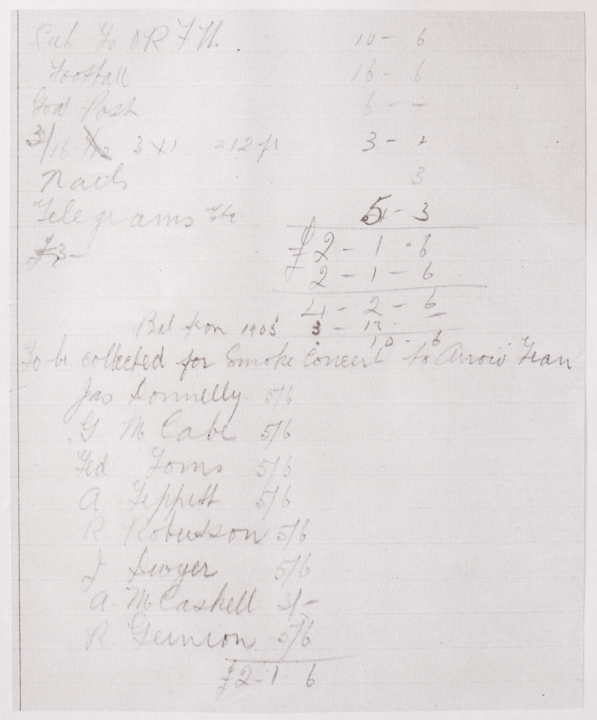 Sub to O R F U. 10 - 6
Football 16 - 6
Goal Posts 6 - -
3/16 3 x 1 = 12 ft 3 - +
Nails 3
Telegrams etc 5 - 3
£3 - £2 - 1 - 6
2 - 1 - 6
4 - 2 - 6
Bal from 1905 3 - 12 -
10 - 6
To be collected for Smoke Concert to Arrow Team
Jas Donnelly 5/6
G McCabe 5/6
Ted Toms 5/6
A Tippett 5/6
R. Robertson 5/6
J Dwyer 5/6
A. McCaskell 3/-
R 5/6
£2 - 1 6